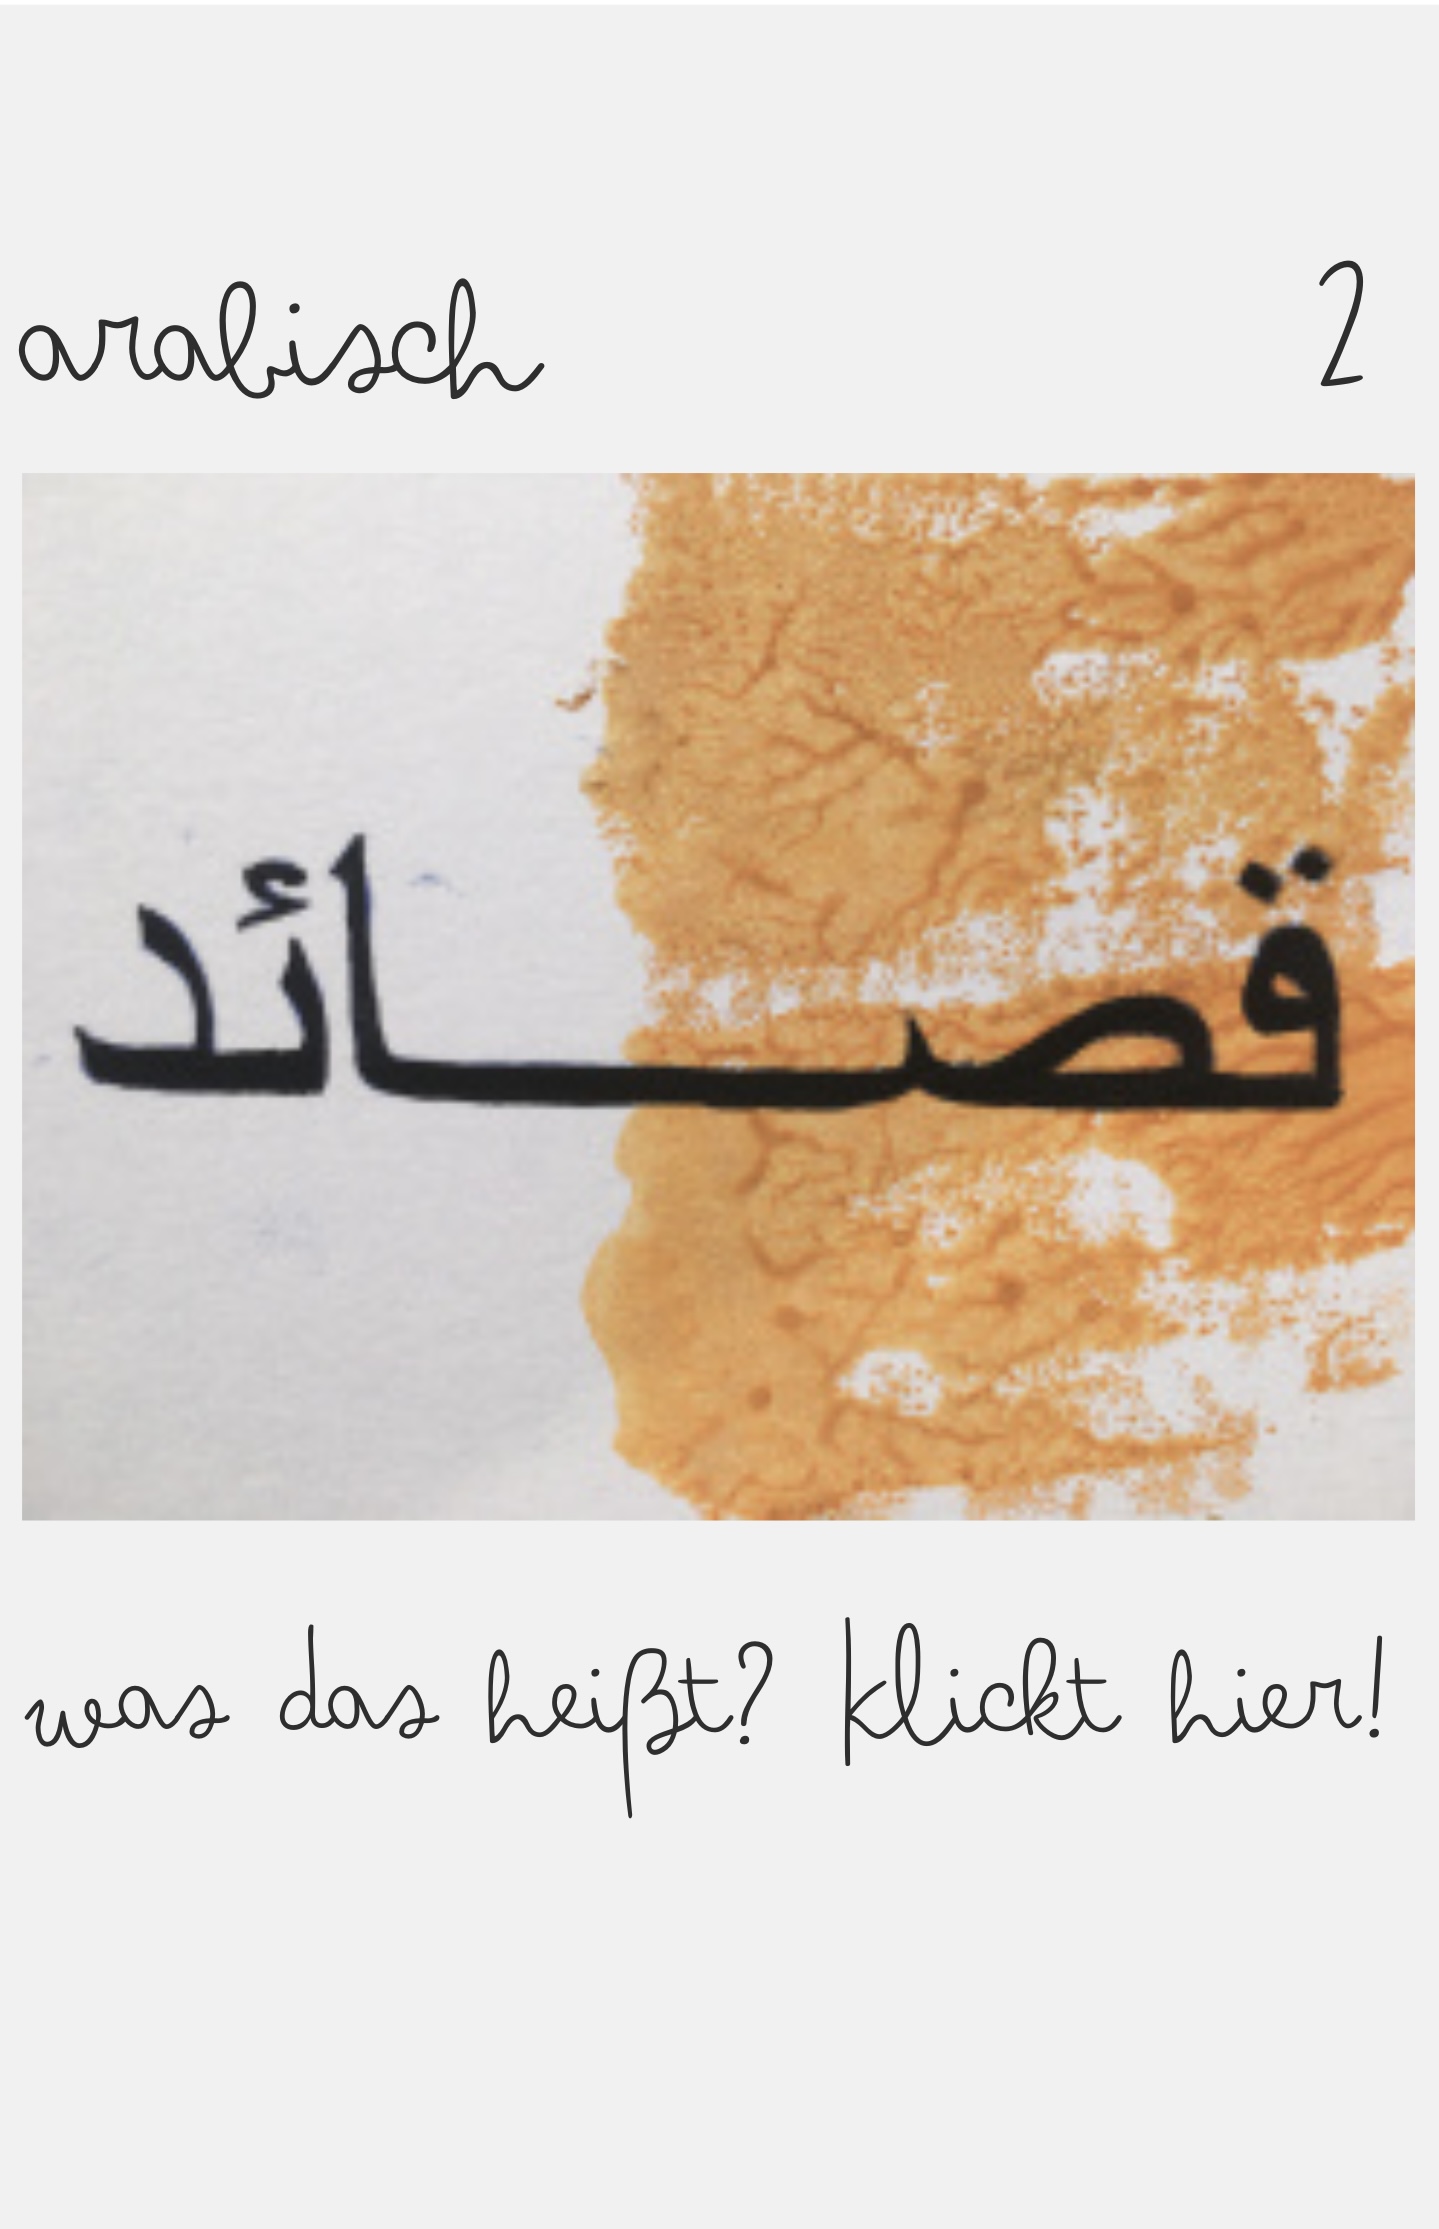 arabisch 2
قصائد
was das heißt? klickt hier!